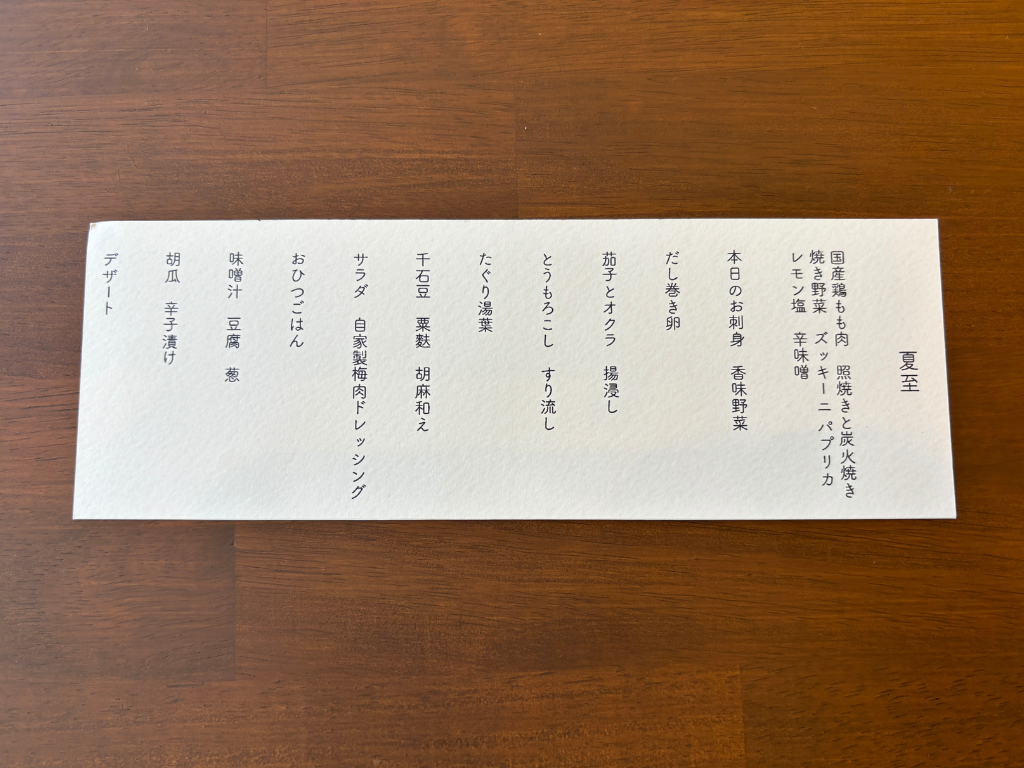 夏至
国産鶏もも肉　照焼きと炭火焼き
焼き野菜　ズッキーニ パプリカ
レモン塩　辛味噌
本日のお刺身　香味野菜
だし巻き卵
茄子とオクラ　揚浸し
とうもろこし　すり流し
たぐり湯葉
千石豆　粟麩　胡麻和え
サラダ　自家製梅肉ドレッシング
おひつごはん
味噌汁　豆腐　葱
胡瓜　辛子漬け
デザート